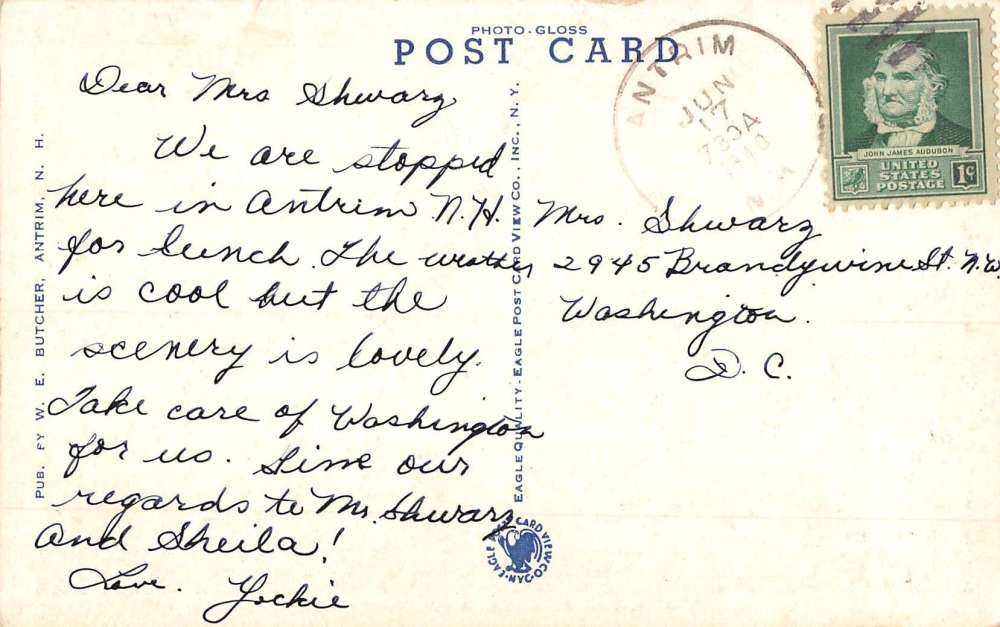 PHOTO-GLOSS
POST CARD
Dear Mrs Shwarz
We are stopped
here in Antrim N.H.
for lunch. The weather
is cool but the
scenery is lovely.
Take care of Washington
for us. Give our
regards to Mr. Shwarz
and Sheila!
Love. Jackie
Mrs. Shwarz
2945 Brandywine St. N.W.
Washington.
D. C.
ANTRIM
JUN
17
730A
JOHN JAMES AUDUBON
UNITED
STATES
POSTAGE
1¢
PUB. FY W. E. BUTCHER, ANTRIM, N. H.
EAGLE QUALITY-EAGLE POST CARD VIEW CO., INC., N. Y.
EAGLE POST CARD VIEW CO. N.Y.